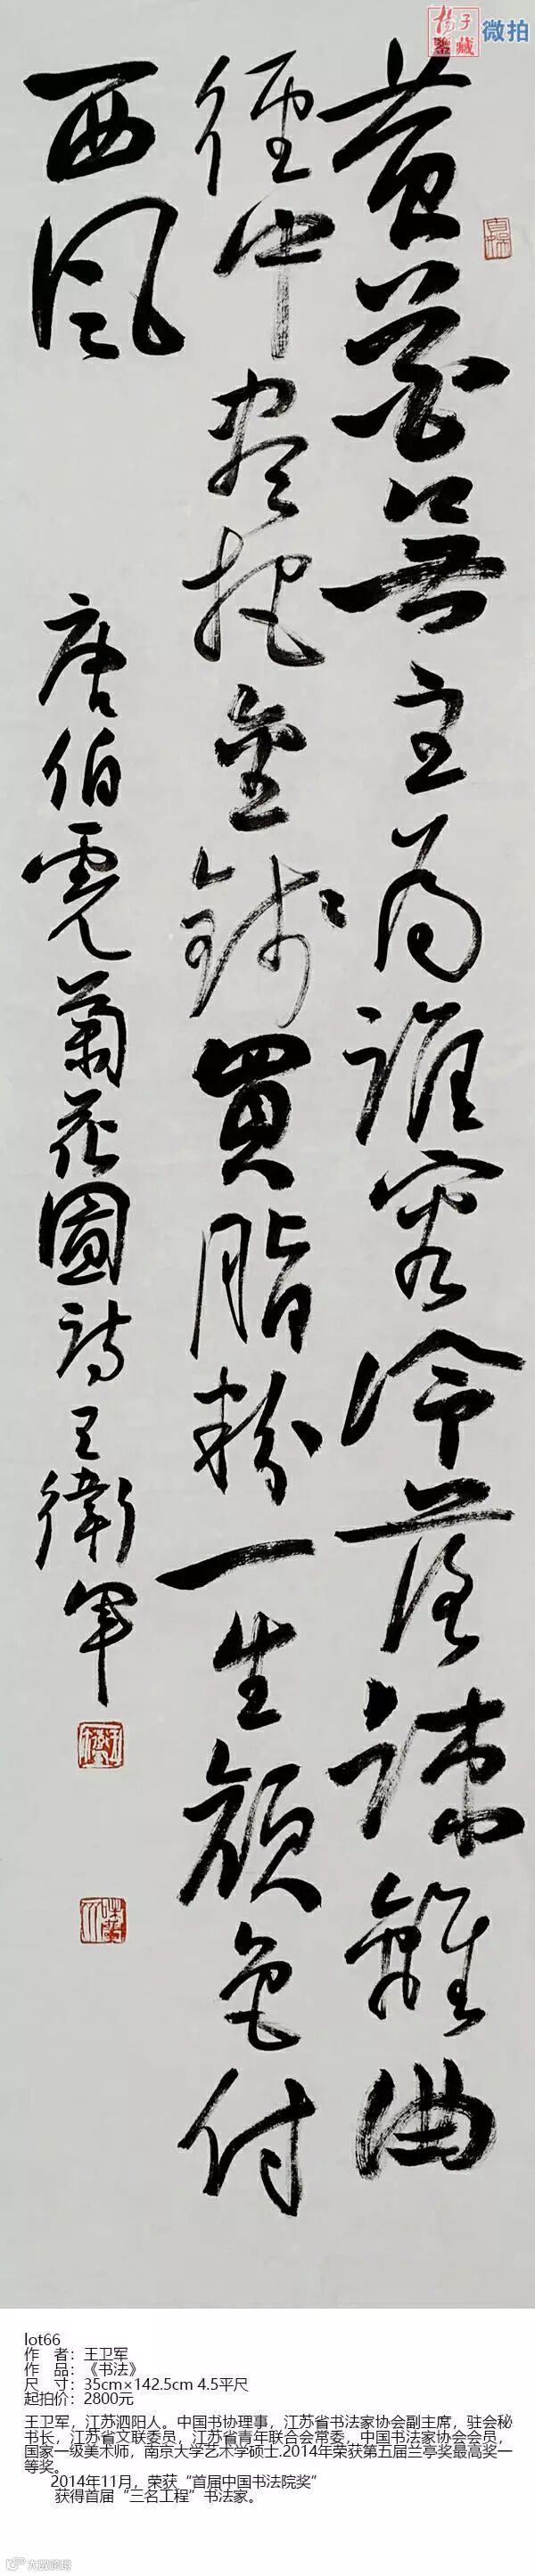 扬子
鉴藏
微拍
黄花無主為誰容冷落疎籬曲
徑中盡把金錢買脂粉一生顔色付
西風
唐伯虎菊花圖詩王衛軍
lot66
作 者：王卫军
作 品：《书法》
尺 寸：35cm×142.5cm 4.5平尺
起拍价：2800元
王卫军，江苏泗阳人。中国书协理事，江苏省书法家协会副主席，驻会秘
书长，江苏省文联委员，江苏省青年联合会常委，中国书法家协会会员，
国家一级美术师，南京大学艺术学硕士.2014年荣获第五届兰亭奖最高奖一
等奖。
2014年11月，荣获“首届中国书法院奖”
获得首届“三名工程”书法家。